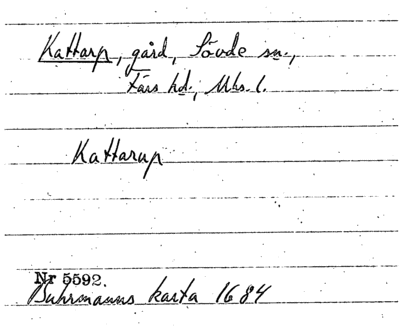 Kattarp, gård, Sövde sn.,
Färs hd., Mbs. l.
Kattarup
Nr 5592.
Buhrmanns karta 1684